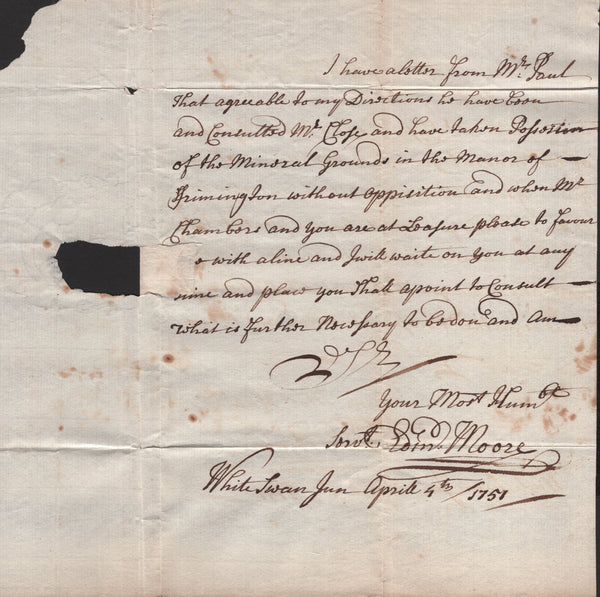 I have a letter from Mr. Paul
That agreeable to my Directions he have been
and Consulted Mr. Close and have taken Possession
of the Mineral Grounds in the Manor of —
Brimington without oppisition and when Mr
Chambers and you are at Leasure please to favour
e with a line and I will waite on you at any
time and place you Shall apoint to Consult —
What is further Necessary to be done and Am —
Sr
Your Most Humble
Servt. Edwd. Moore
White Swan Inn Aprile 4th/1751